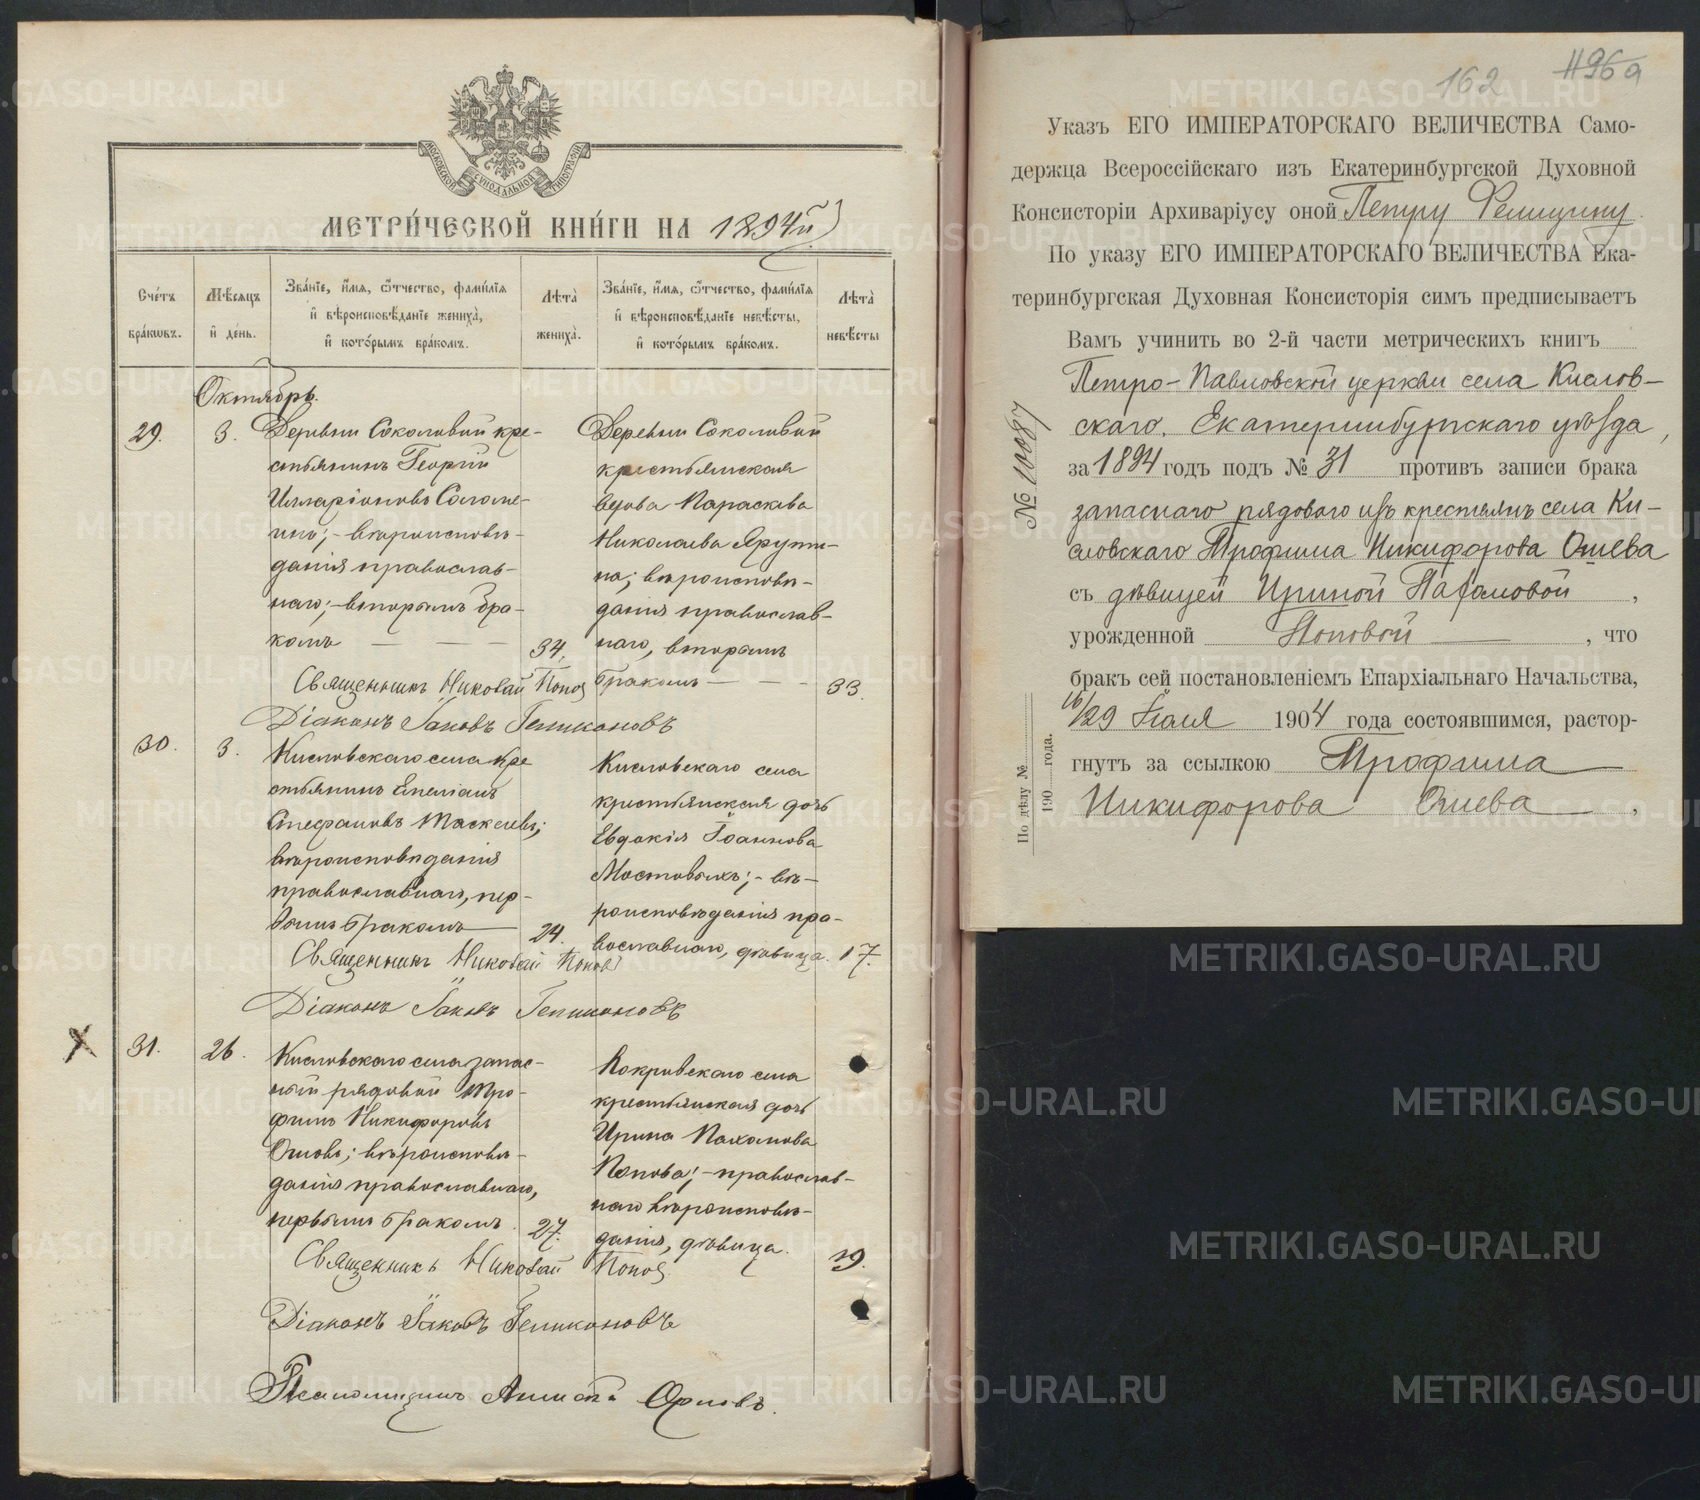 МОСКОВСКОЙ СѴНОДАЛЬНОЙ ТИПОГРАФІИ
МЕТРИ́ЧЕСКОЙ КНИ́ГИ НА 1894й
Сче́тъ бра́кѡвъ.
Мѣ́сяцъ и҆ де́нь.
Зва́нїе, и҆́мя, ѻ҆́тчество, фами́лїя
и҆ вѣроисповѣ́данїе жениха̀,
и҆ кото́рымъ бра́комъ.
Лѣта̀ жениха̀.
Зва́нїе, и҆́мя, ѻ҆́тчество, фами́лїя
и҆ вѣроисповѣ́данїе невѣ́сты,
и҆ кото́рымъ бра́комъ.
Лѣта̀ невѣ́сты
Октябрь.
29. 3.
Деревни Соколовой кре-
стьянинъ Георгій
Илларіоновъ Соломе-
инъ; вѣроисповѣ-
данія православ-
наго; вторымъ бра-
комъ 34.
Деревни Соколовой
крестьянская
вдова Параскева
Николаева Ярути-
на; вѣроисповѣ-
данія православ-
наго, вторымъ
бракомъ 33.
Священникъ Николай Поповъ
Діаконъ Іаковъ Геликоновъ
30. 3.
Кисловскаго села кре
стьянинъ Емеліанъ
Стефановъ Таскаевъ;
вѣроисповѣданія
православнаго, пер-
вымъ бракомъ 24.
Кисловскаго села
крестьянская дочь
Евдокія Іоаннова
Мостовыхъ; вѣ-
роисповѣданія пра-
вославнаго, дѣвица. 17.
Священникъ Николай Поповъ
Діаконъ Іаковъ Геликоновъ
31. 26.
Кисловскаго села запас-
ный рядовой Тро-
фимъ Никифоровъ
Ошевъ; вѣроисповѣ-
данія православнаго,
первымъ бракомъ. 27.
Покровскаго села
крестьянская дочь
Ирина Пахомова
Попова; православ-
наго вѣроисповѣ-
данія, дѣвица. 19.
Священникъ Николай Поповъ
Діаконъ Іаковъ Геликоновъ
Псаломщикъ Орловъ.
162 1196а
Указъ ЕГО ИМПЕРАТОРСКАГО ВЕЛИЧЕСТВА Само-
держца Всероссійскаго изъ Екатеринбургской Духовной
Консисторіи Архиваріусу оной Петру Фелицину.
По указу ЕГО ИМПЕРАТОРСКАГО ВЕЛИЧЕСТВА Ека-
теринбургская Духовная Консисторія симъ предписываетъ
Вамъ учинить во 2-й части метрическихъ книгъ
Петро-Павловской церкви села Кислов-
скаго, Екатеринбургскаго уѣзда,
за 1894 годъ подъ № 31 противъ записи брака
запаснаго рядового изъ крестьянъ села Ки-
словскаго Трофима Никифорова Ошева
съ дѣвицей Ириной Пахомовой,
урожденной Поповой, что
бракъ сей постановленіемъ Епархіальнаго Начальства,
16/29 Іюля 1904 года состоявшимся, растор-
гнутъ за ссылкою Трофима
Никифорова Ошева,
№ 10087
По дѣлу №
190 года.
METRIKI.GASO-URAL.RU